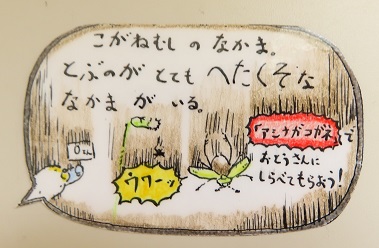 こがねむし の なかま。
とぶのが とても へたくそな
なかま が いる。
「アシナガコガネ」で
おとうさんに
しらべてもらおう!
ウワーッ